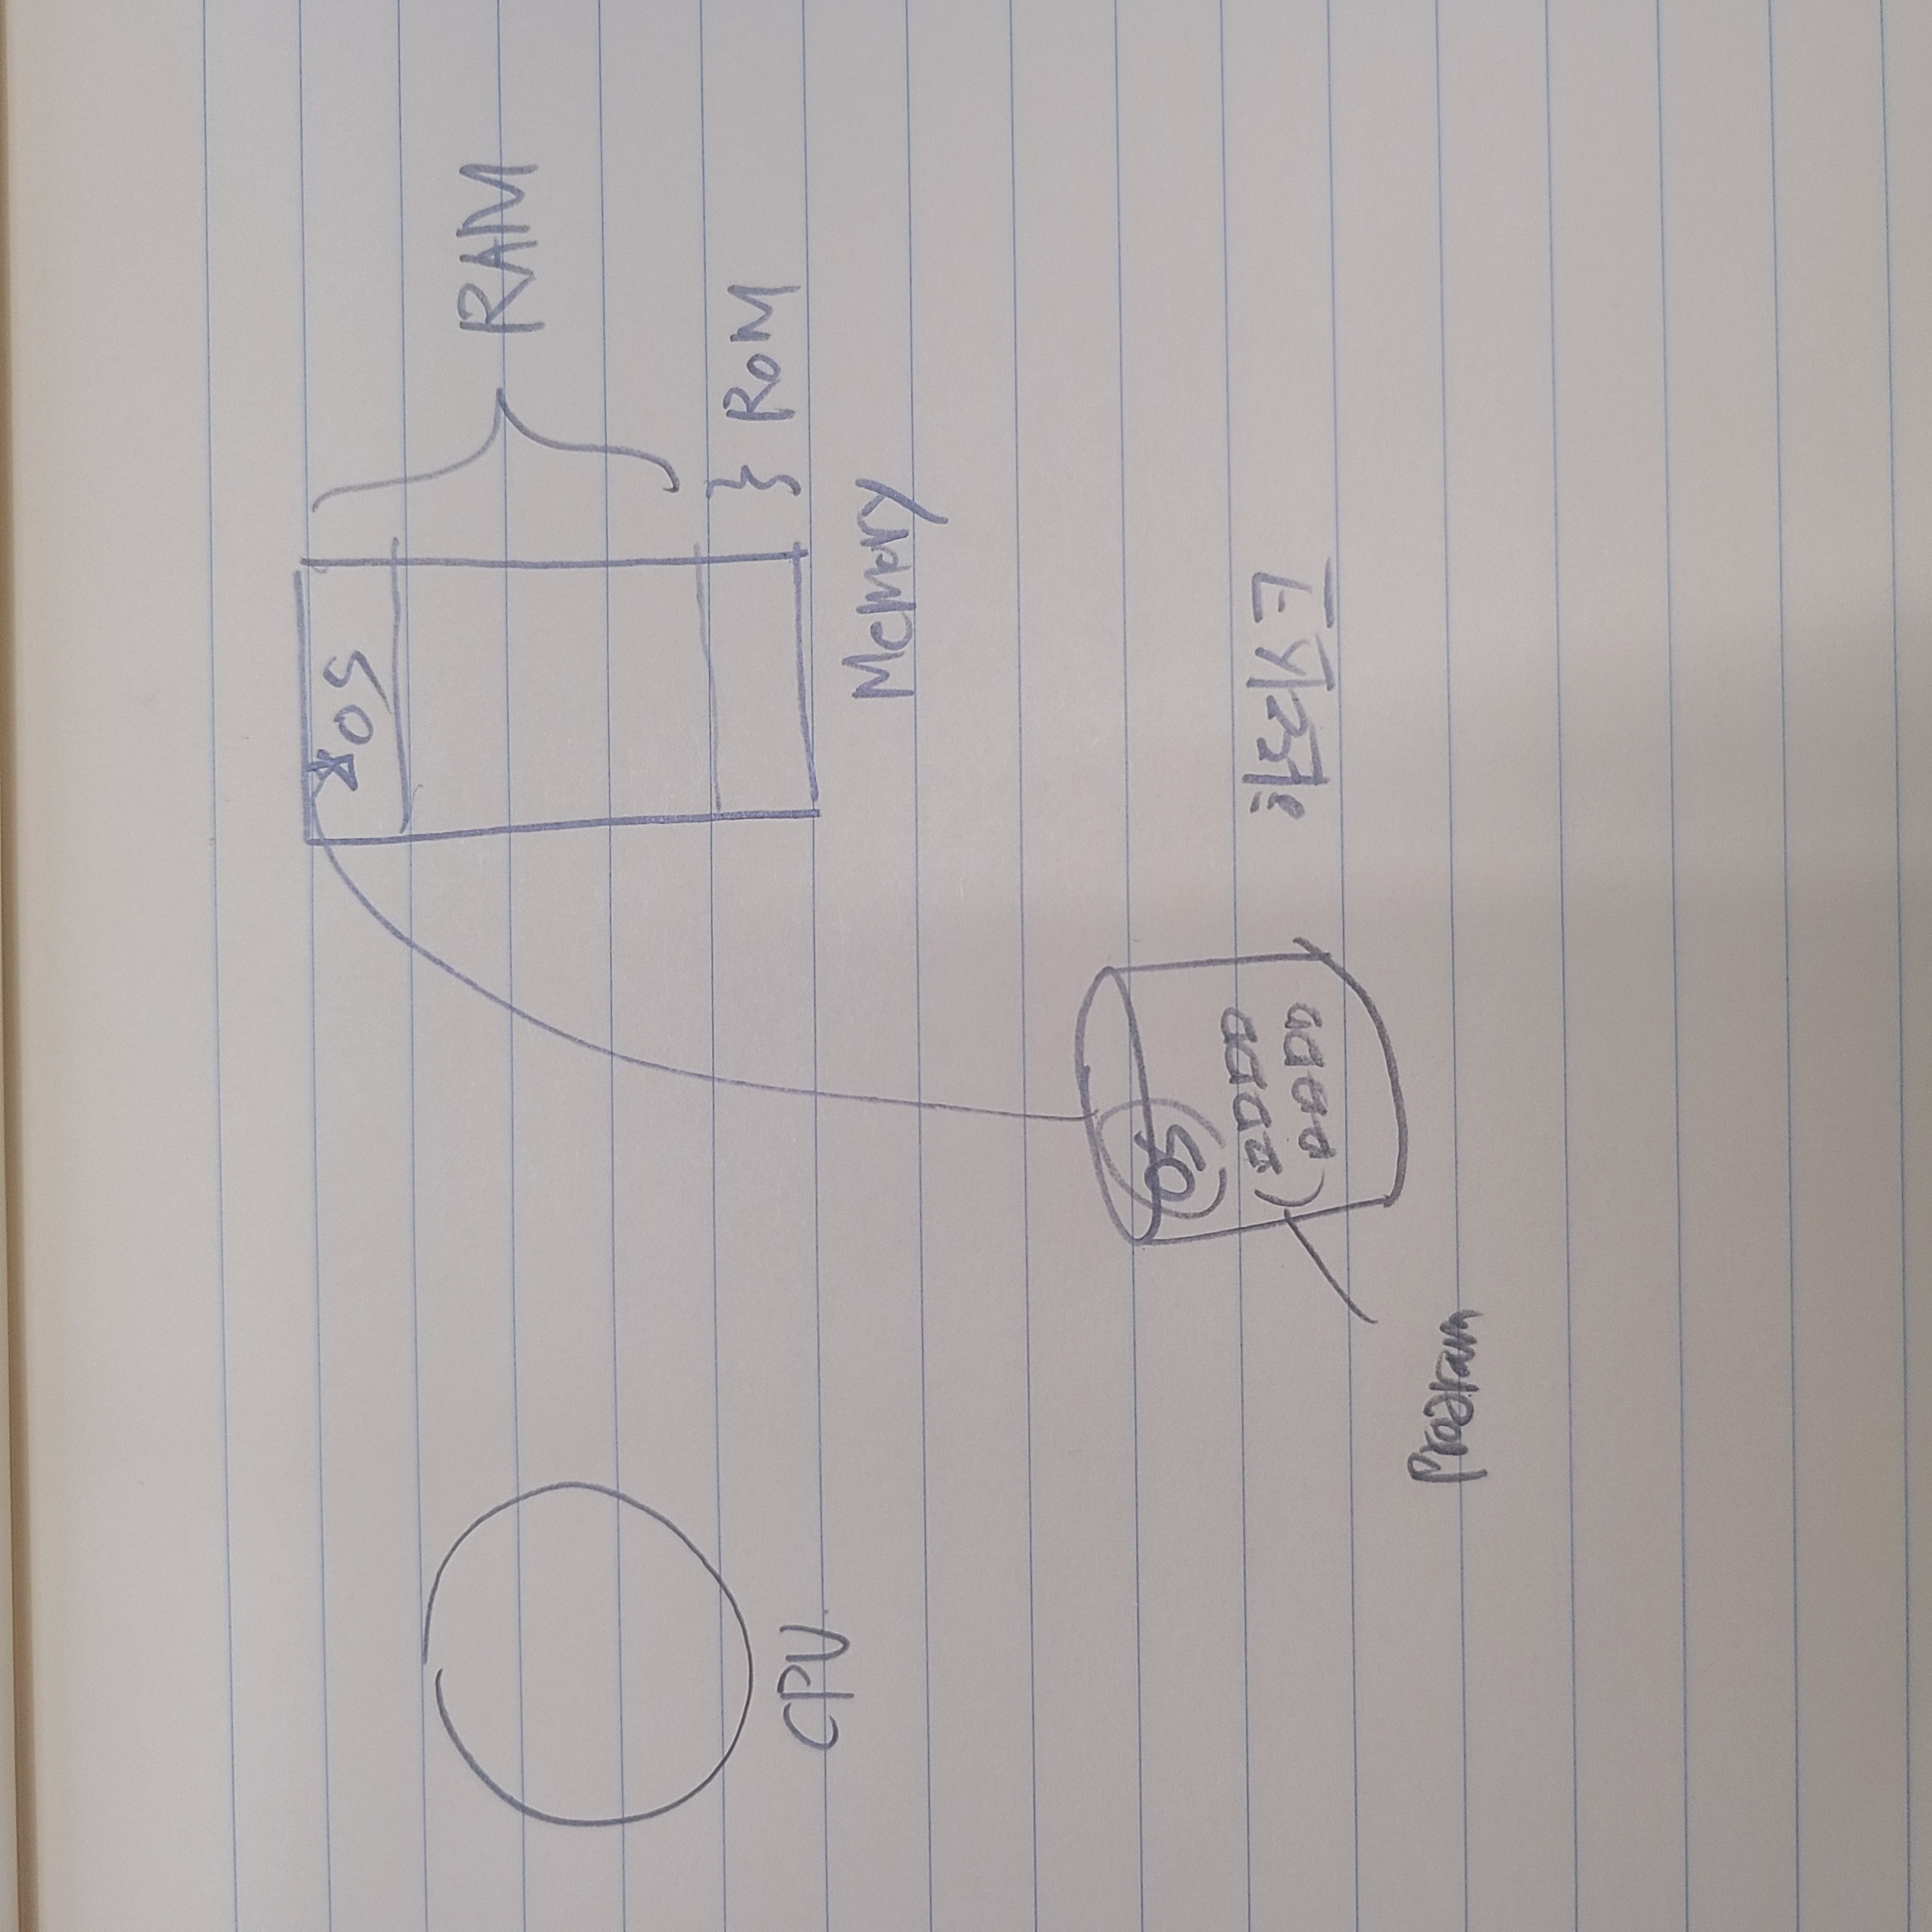 OS
RAM
CPU
ROM
Memory
OS
하드디스크
Program